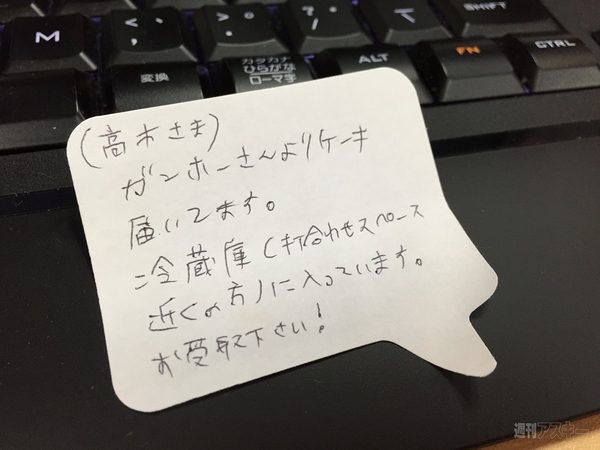 M
< 、
> 。
? ・
/
SHIFT
変換
カタカナ
ひらがな
ローマ字
ALT
FN
CTRL
(高木さま)
ガンホーさんよりケーキ
届いてます。
冷蔵庫(打合わせスペース
近くの方)に入っています。
お受取下さい!
週刊アスキー